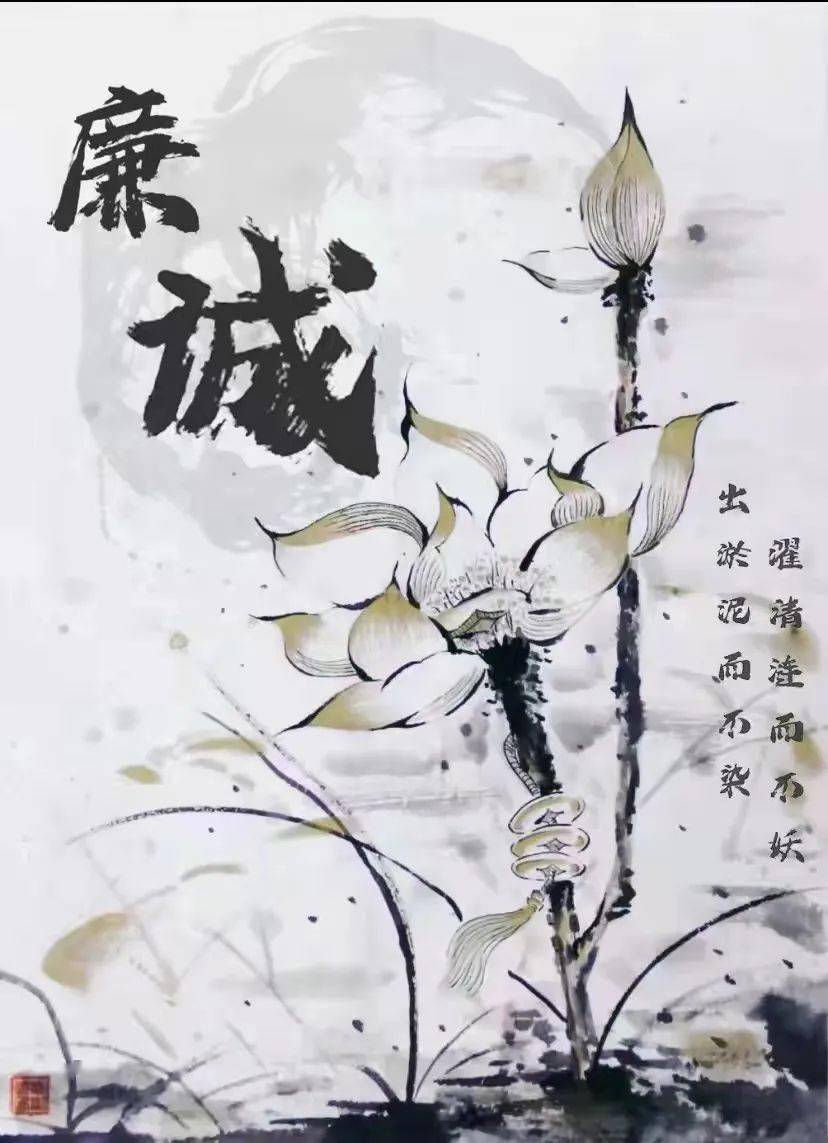 廉
诚
出淤泥而不染
濯清涟而不妖